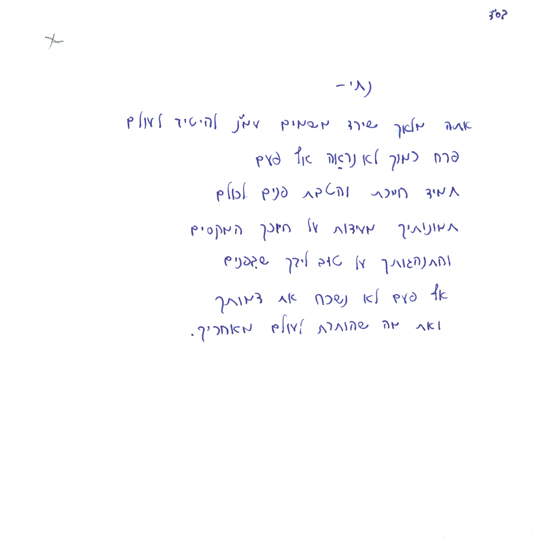 בס"ד
נתי -
אתה מלאך שירד משמים ע"מ להיטיב לעולם
פרח כמוך לא נראה אף פעם
תמיד חייכת והטבת פנים לכולם
תמונותיך מעידות על חינך המקסים
והתנהגותך על טוב ליבך שבפנים
אף פעם לא נשכח את דמותך
ואת מה שהותרת לעולם מאחריך.